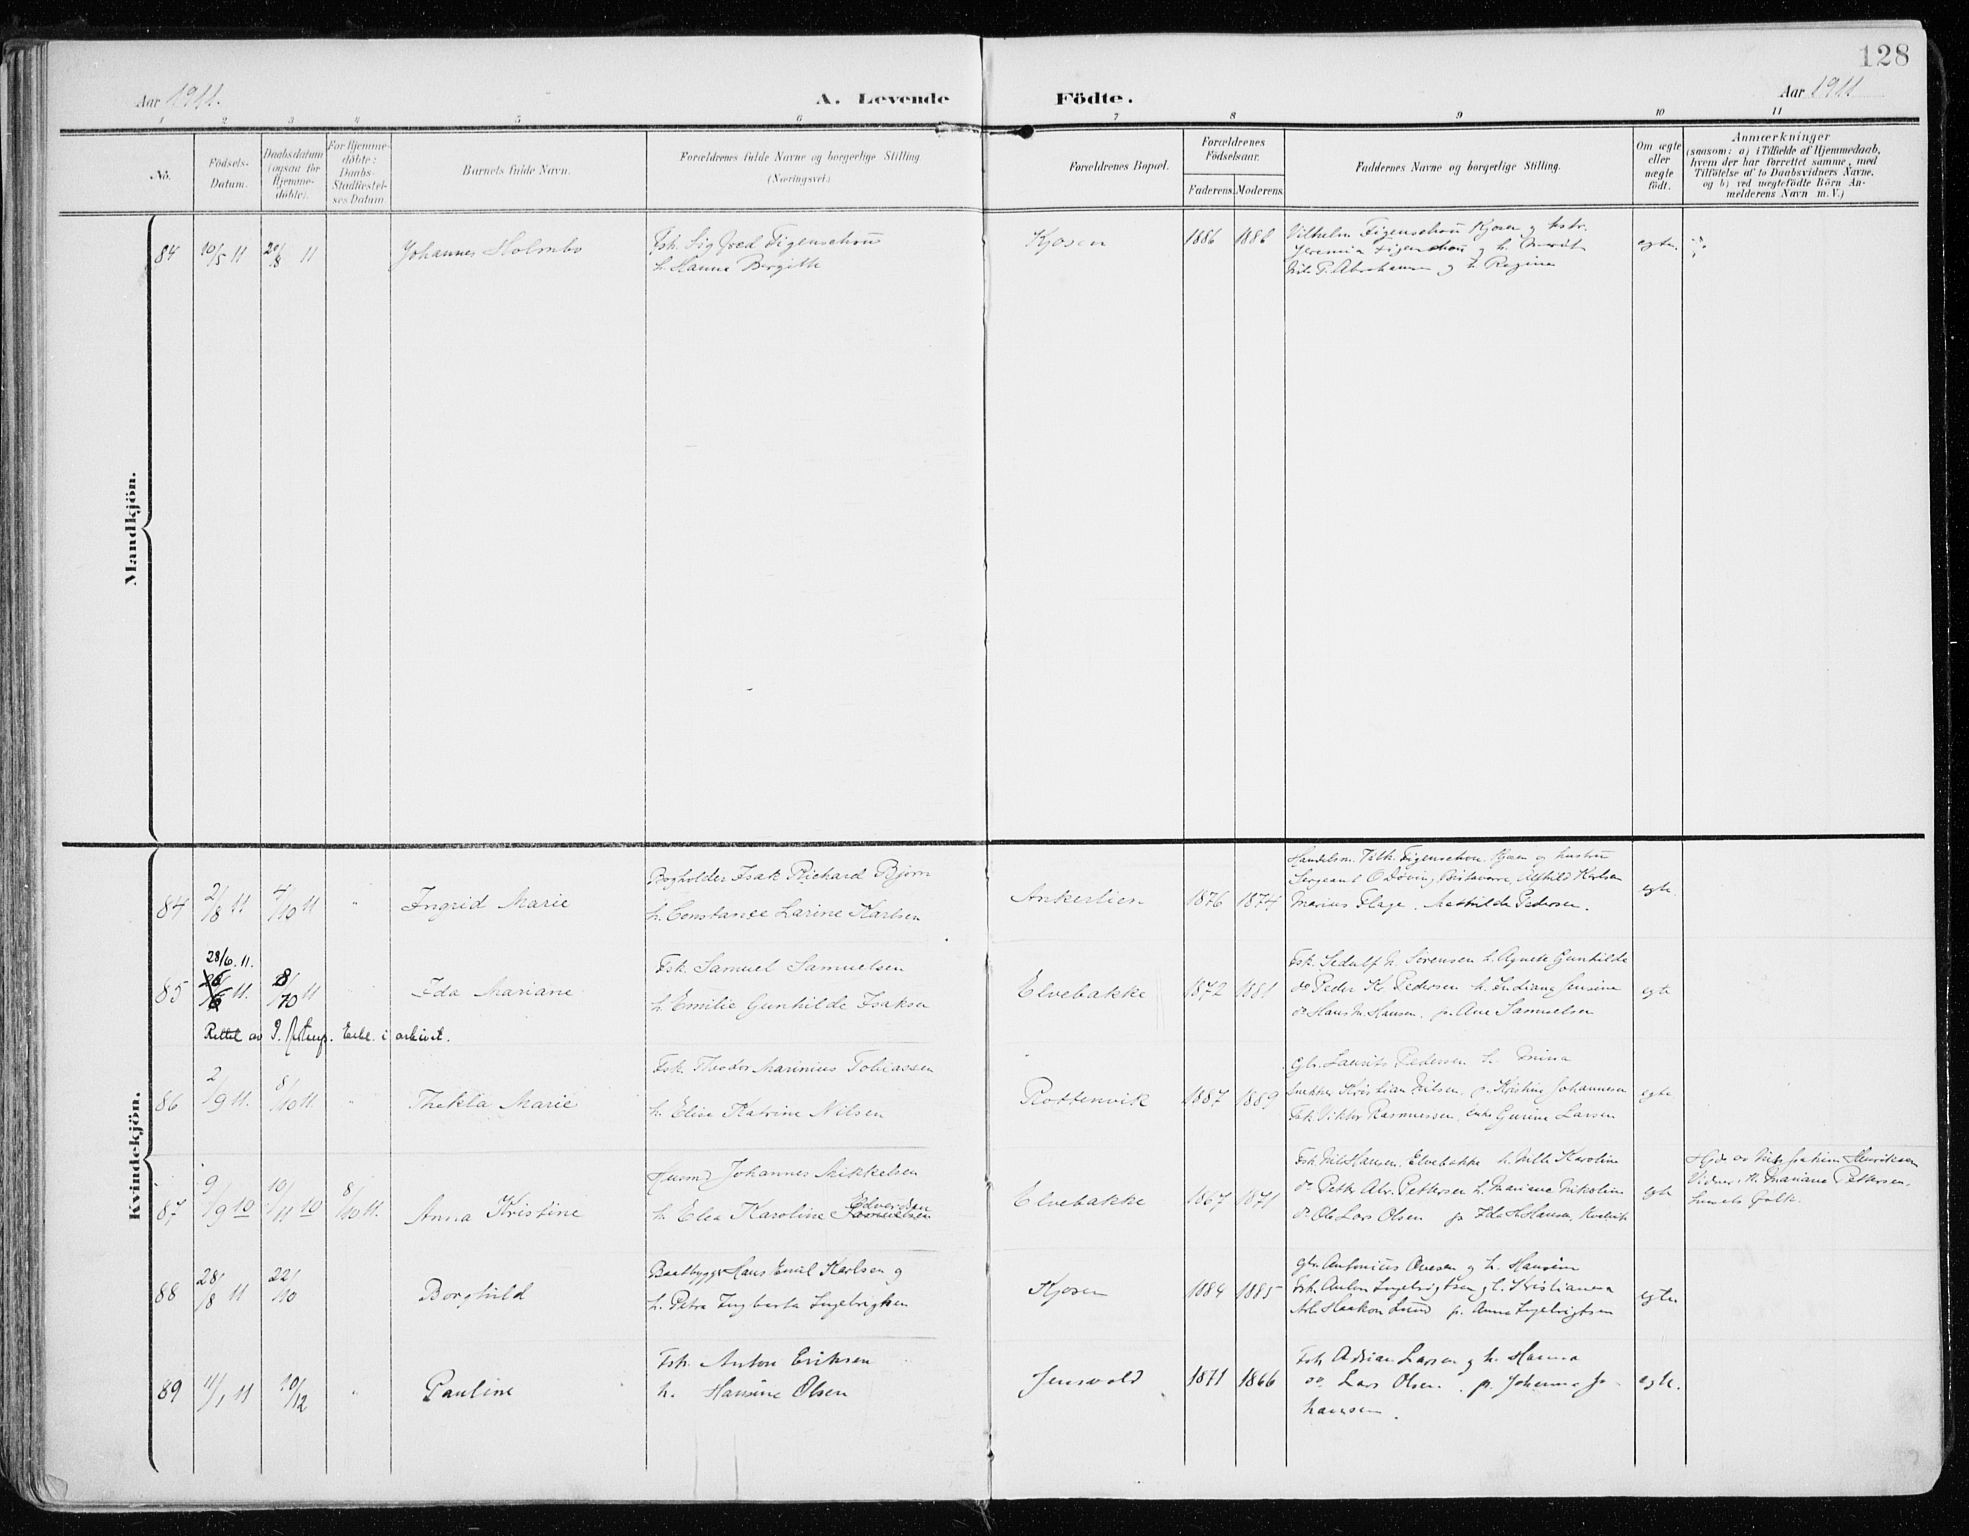 128
Aar 1911.
A. Levende Födte.
Aar 1911
1 2 3 4 5 6 7 8 9 10 11
No.
Födsels-Datum.
Daabsdatum (ogsaa for Hjemme-döbte).
For Hjemme-döbte: Daabs-Stadfæstel-ses Datum.
Barnets fulde Navn.
Forældrenes fulde Navne og borgerlige Stilling. (Næringsvei.)
Forældrenes Bopæl.
Forældrenes Födselsaar.
Faderens. Moderens.
Faddernes Navne og borgerlige Stilling.
Om ægte eller uægte födt.
Anmærkninger
(saasom: a) i Tilfælde af Hjemmedaab,
hvem der har forrettet samme, med
Tilföielse af to Daabsvidners Navne,
og b) ved uægtefödte Börn An-
melderens Navn m. V.)
Mandkjön.
84 10/5 11 20/8 11 Johannes Holmbo
Fsk. Sigfred Figenschou
h. Hanna Birgith
Kjosen 1886 1886
Vilhelm Figenschou Kjosen og hstr.
Jeremia Figenschou og h. Marit
P. Abrahamsen og h. Regine
egte.
Kvindekjön.
84 2/8 11 4/10 11 " Ingrid Marie
Bogholder Isak Richard Bjørn
h. Constance Larine Karlsen
Ankerlien 1876 1874
Handelsm. Vilh. Figenschou, Kjosen og hustru
Sergeant O Døving, Birtavarre, Alfhild Karlsen
Marius Flage. Mathilde Pedersen.
egte.
28/6. 11.
85 26/6 11. 8/10 11 Ida Mariane
Fsk. Samuel Samuelsen
h. Emilie Gunhilde Isaksen
Elvebakke 1872 1881
Fsk. Sedulf H. Sørensen h. Agnete Gunhilde
do Peder Kr. Pedersen h. Indiane Jensine
do Hans M. Hansen. p. Ane Samuelsen
egte
Rettet av P. Astrup. Erkl. i arkivet.
86 2/9 11. 8/10 11 " Thekla Marie
Fsk. Theodor Marinius Tobiassen
h. Elise Katrine Nilsen
Rottenvik 1887 1889
Gbr. Laurits Pedersen h. Mina
Snekker Kristian Nilsen. p. Kristine Johannesen
Fsk. Viktor Rasmussen, enke Gurine Larsen
egte
87 9/9 10 10/11 10 8/10 11. Anna Kristine
Husmd Johannes Mikkelsen
h. Elea Karoline Samuelsen Edvardsen
Elvebakke 1867 1871
Fsk. Nils Hansen, Elvebakke h. Milla Karoline
do Petter Abr. Pettersen h. Mariane Nikoline
do Ole Lars Olsen p. Ida H. Hansen,
egte
Hjdr av Nils Joakim Henriksen
Vidner: H. Mariane Pettersen,
Samuels folk.
88 28/8 11 22/10 Borghild
Baatbygger Hans Emil Karlsen og
h. Petra Ingberta Ingebrigtsen
Kjosen 1884 1885
Gbr. Antonius Ovesen og h. Hansine
Fsk. Anton Ingebrigtsen og h. Kristianna
Arb. Haakon Lund p. Anna Ingebrigtsen
egte
89 11/1 11 10/12 " Pauline
Fsk. Anton Eriksen
h. Hansine Olsen
Jensvold 1871 1866
Fsk Adrian Larsen og h. Hanna
do. Lars Olsen. p. Johanna Jo-
hansen.
egte.